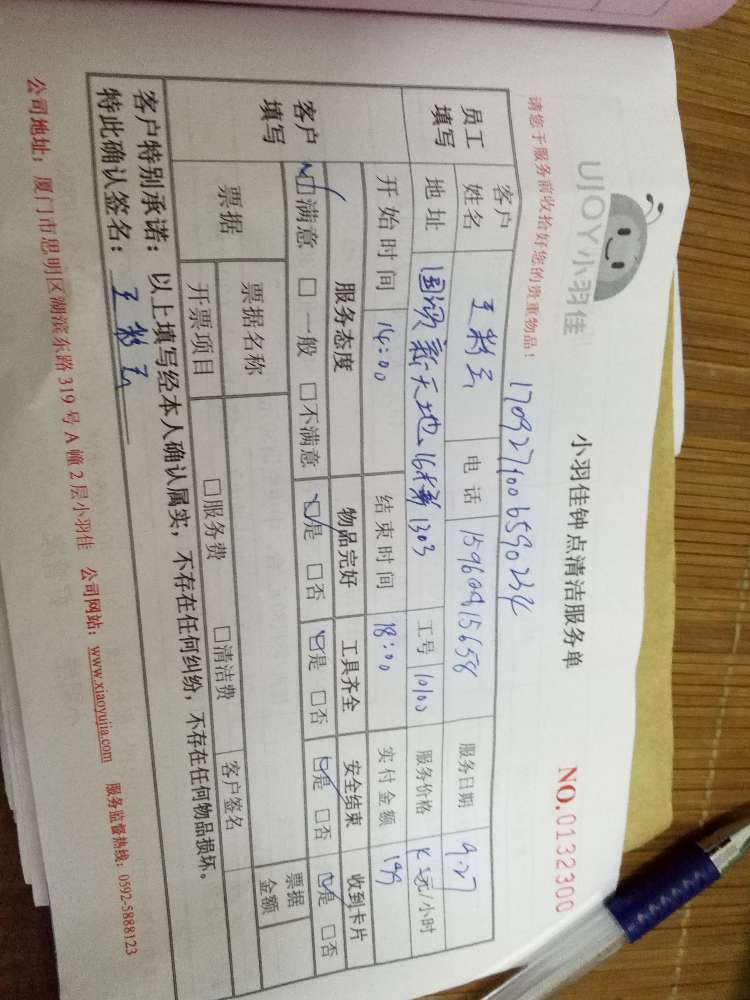 UJOY小羽佳
小羽佳钟点清洁服务单
NO.0132300
请您于服务前收拾好您的贵重物品！
员工填写
客户姓名 王 电话 15960915658 服务日期 9.27
地址 国欣新天地、16栋1303 工号 10100 服务价格 元/小时
开始时间 14:00 结束时间 18:00 实付金额 199
客户填写
服务态度 物品完好 工具齐全 安全结束 收到卡片
☑满意 □一般 □不满意 ☑是 □否 ☑是 □否 ☑是 □否 ☑是 □否
票据 票据名称 票据金额
开票项目 □服务费 □清洁费 客户签名
客户特别承诺：以上填写经本人确认属实，不存在任何纠纷，不存在任何物品损坏。
特此确认签名：王
公司地址：厦门市思明区湖滨东路319号A幢2层小羽佳 公司网站：www.xiaoyujia.com 服务监督热线：0592-5888123